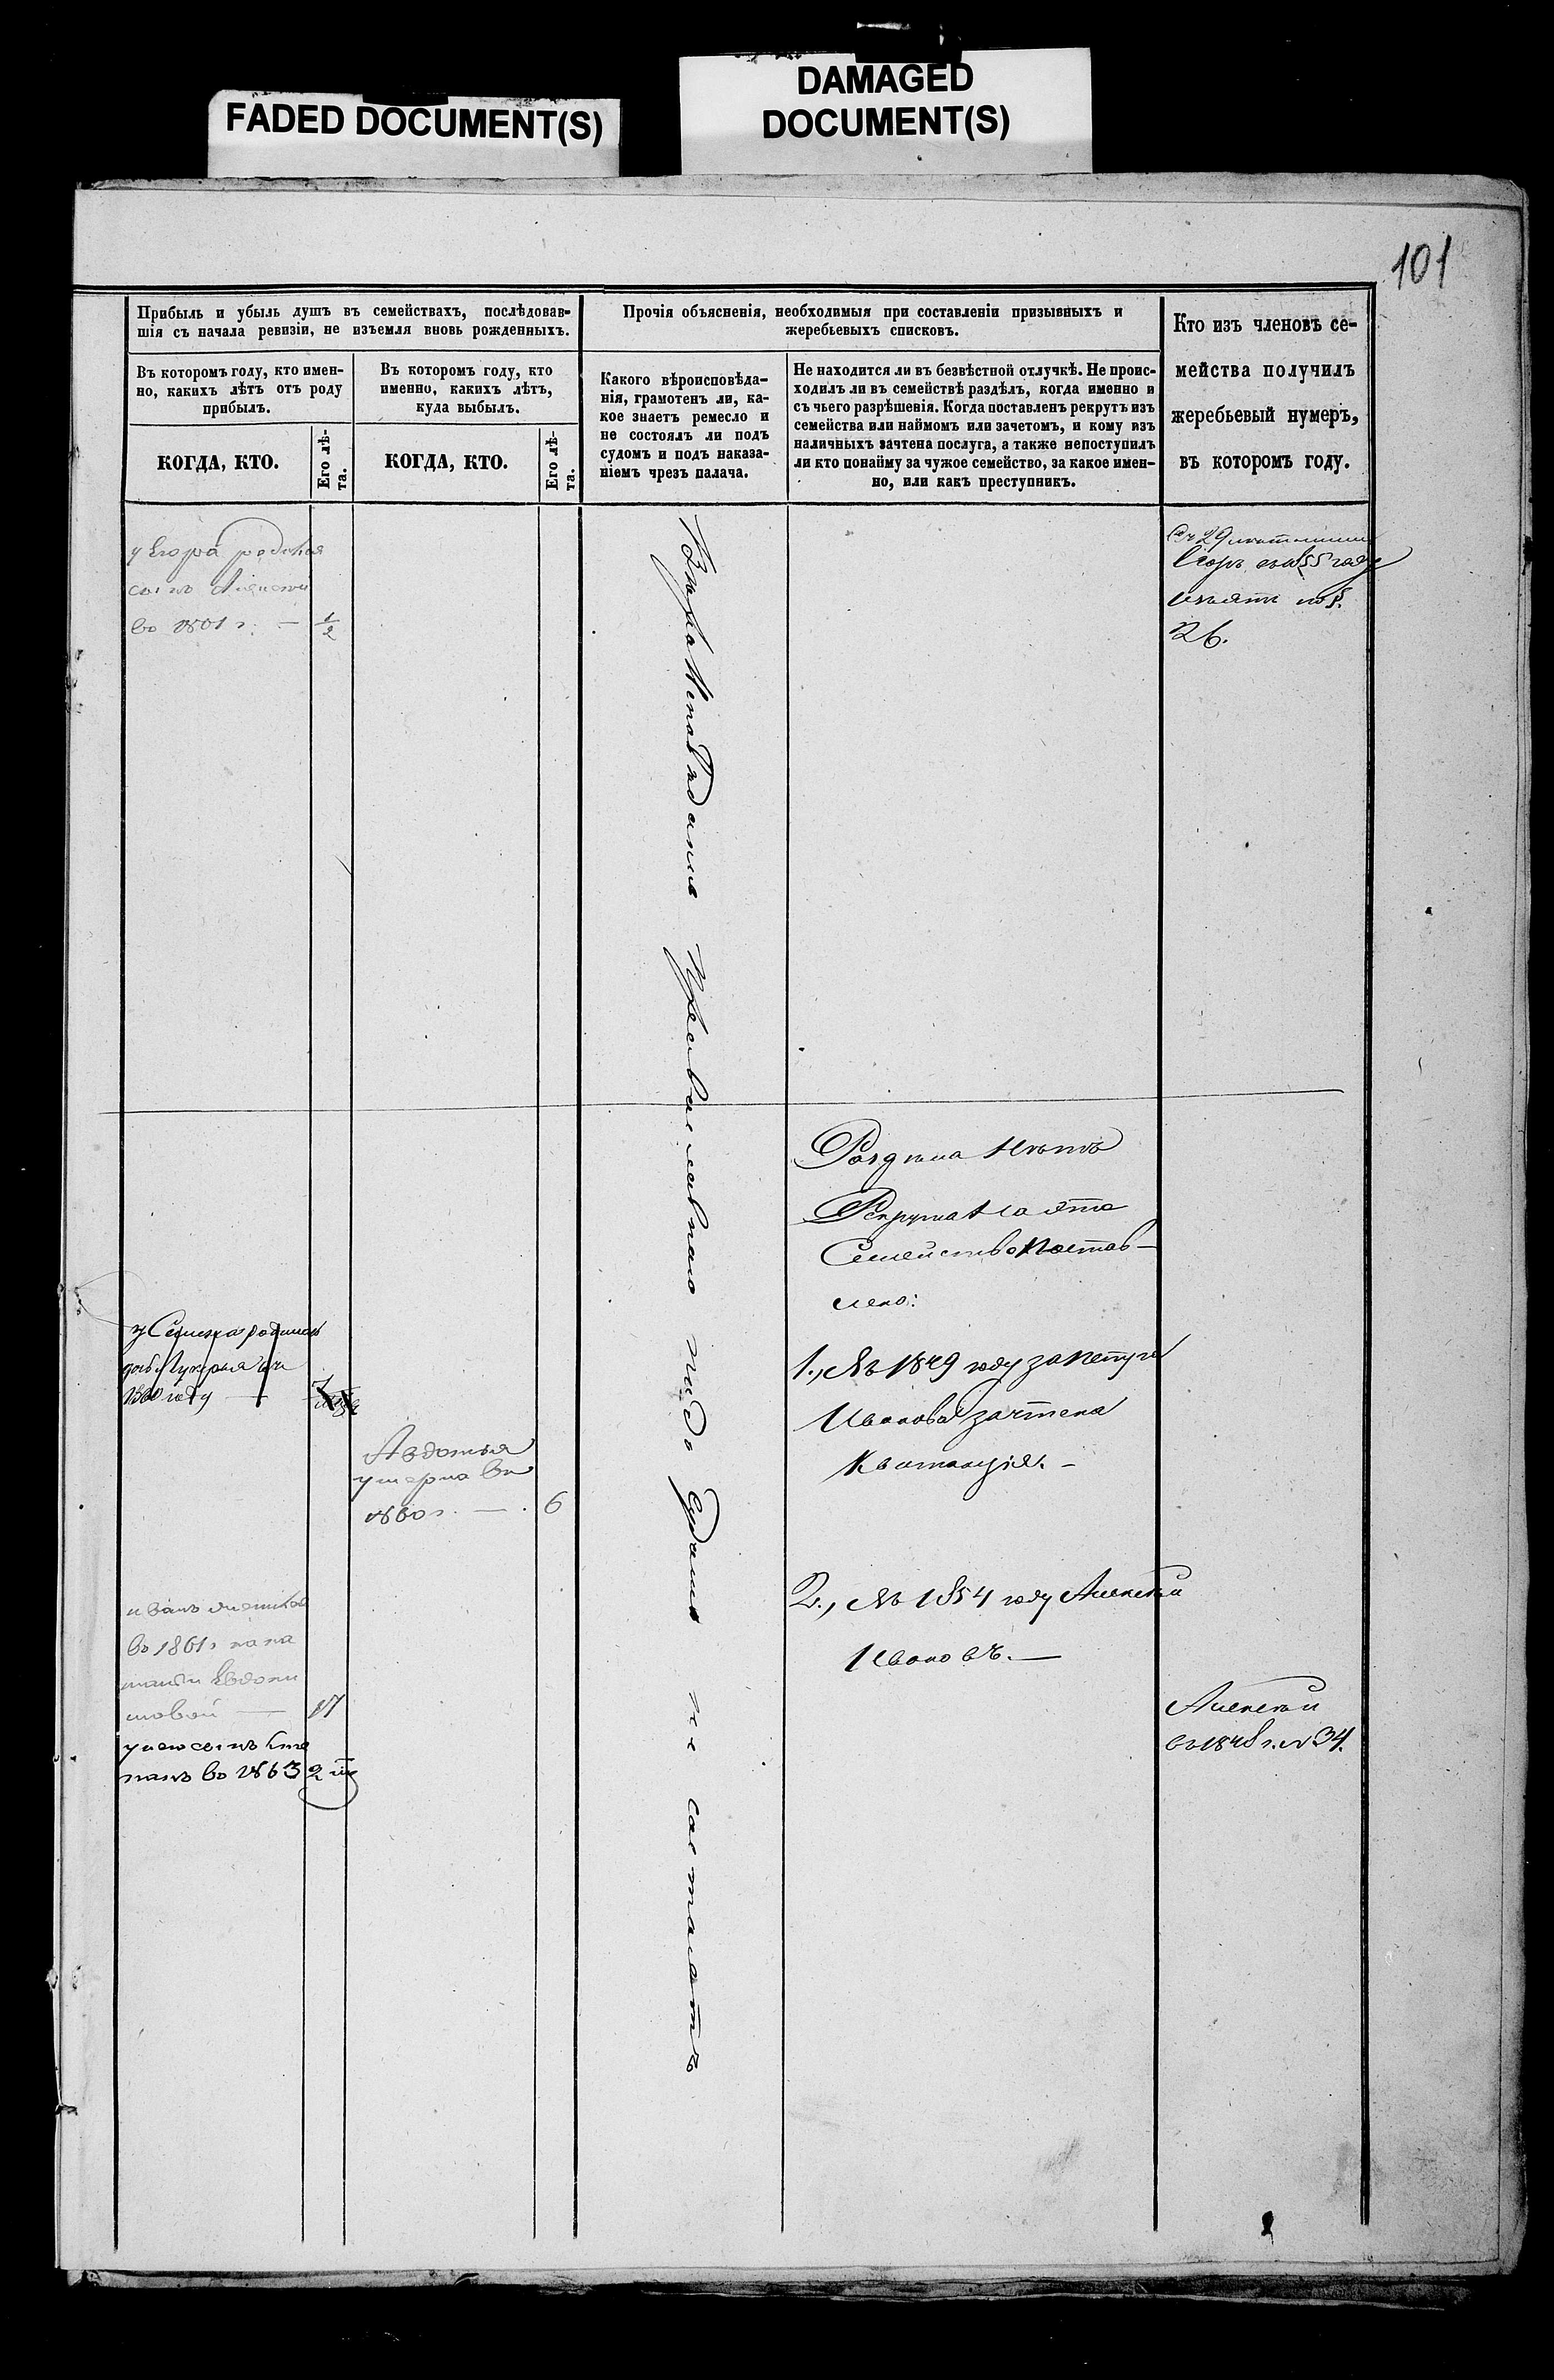 FADED DOCUMENT(S)
DAMAGED
DOCUMENT(S)
101
Прибыль и убыль душъ въ семействахъ, послѣдовав-
шія съ начала ревизіи, не изъемля вновь рожденныхъ.
Въ которомъ году, кто имен-
но, какихъ лѣтъ отъ роду
прибылъ.
КОГДА, КТО.
Его лѣ-
та.
Въ которомъ году, кто
именно, какихъ лѣтъ,
куда выбылъ.
КОГДА, КТО.
Его лѣ-
та.
Прочія объясненія, необходимыя при составленіи призывныхъ и
жеребьевыхъ списковъ.
Какого вѣроисповѣда-
нія, грамотенъ ли, ка-
кое знаетъ ремесло и
не состоялъ ли подъ
судомъ и подъ наказа-
ніемъ чрезъ палача.
Не находится ли въ безвѣстной отлучкѣ. Не проис-
ходилъ ли въ семействѣ раздѣлъ, когда именно и
съ чьего разрѣшенія. Когда поставленъ рекрутъ изъ
семейства или наймомъ или зачетомъ, и кому изъ
наличныхъ зачтена послуга, а также непоступилъ
ли кто понайму за чужое семейство, за какое имен-
но, или какъ преступникъ.
Кто изъ членовъ се-
мейства получилъ
жеребьевый нумеръ,
въ которомъ году.
у Егора родился
сынъ Алексей
во 1861 г. — 1/2
Вѣроисповѣданія Православнаго подъ судомъ не состоятъ
Егоръ 55 году
изъятъ по §.
26.
Раздѣла Нѣтъ
Рекрутъ
Семейство Постав-
лено:
у Семена родилась
дочь Лукерья
1860 году —
1., Въ 1849 году за Петра
Иванова зачтена
Квитанція. -
Авдотья
умерла во
1860 г. — . 6
2., Въ 1854 году Алексѣй
Ивановъ. —
Иванъ
во 1861 г.
Евдоки
мовой — 17
у него сынъ Сте
панъ во 1863 2
Алексѣй
въ 1848 г. № 34.